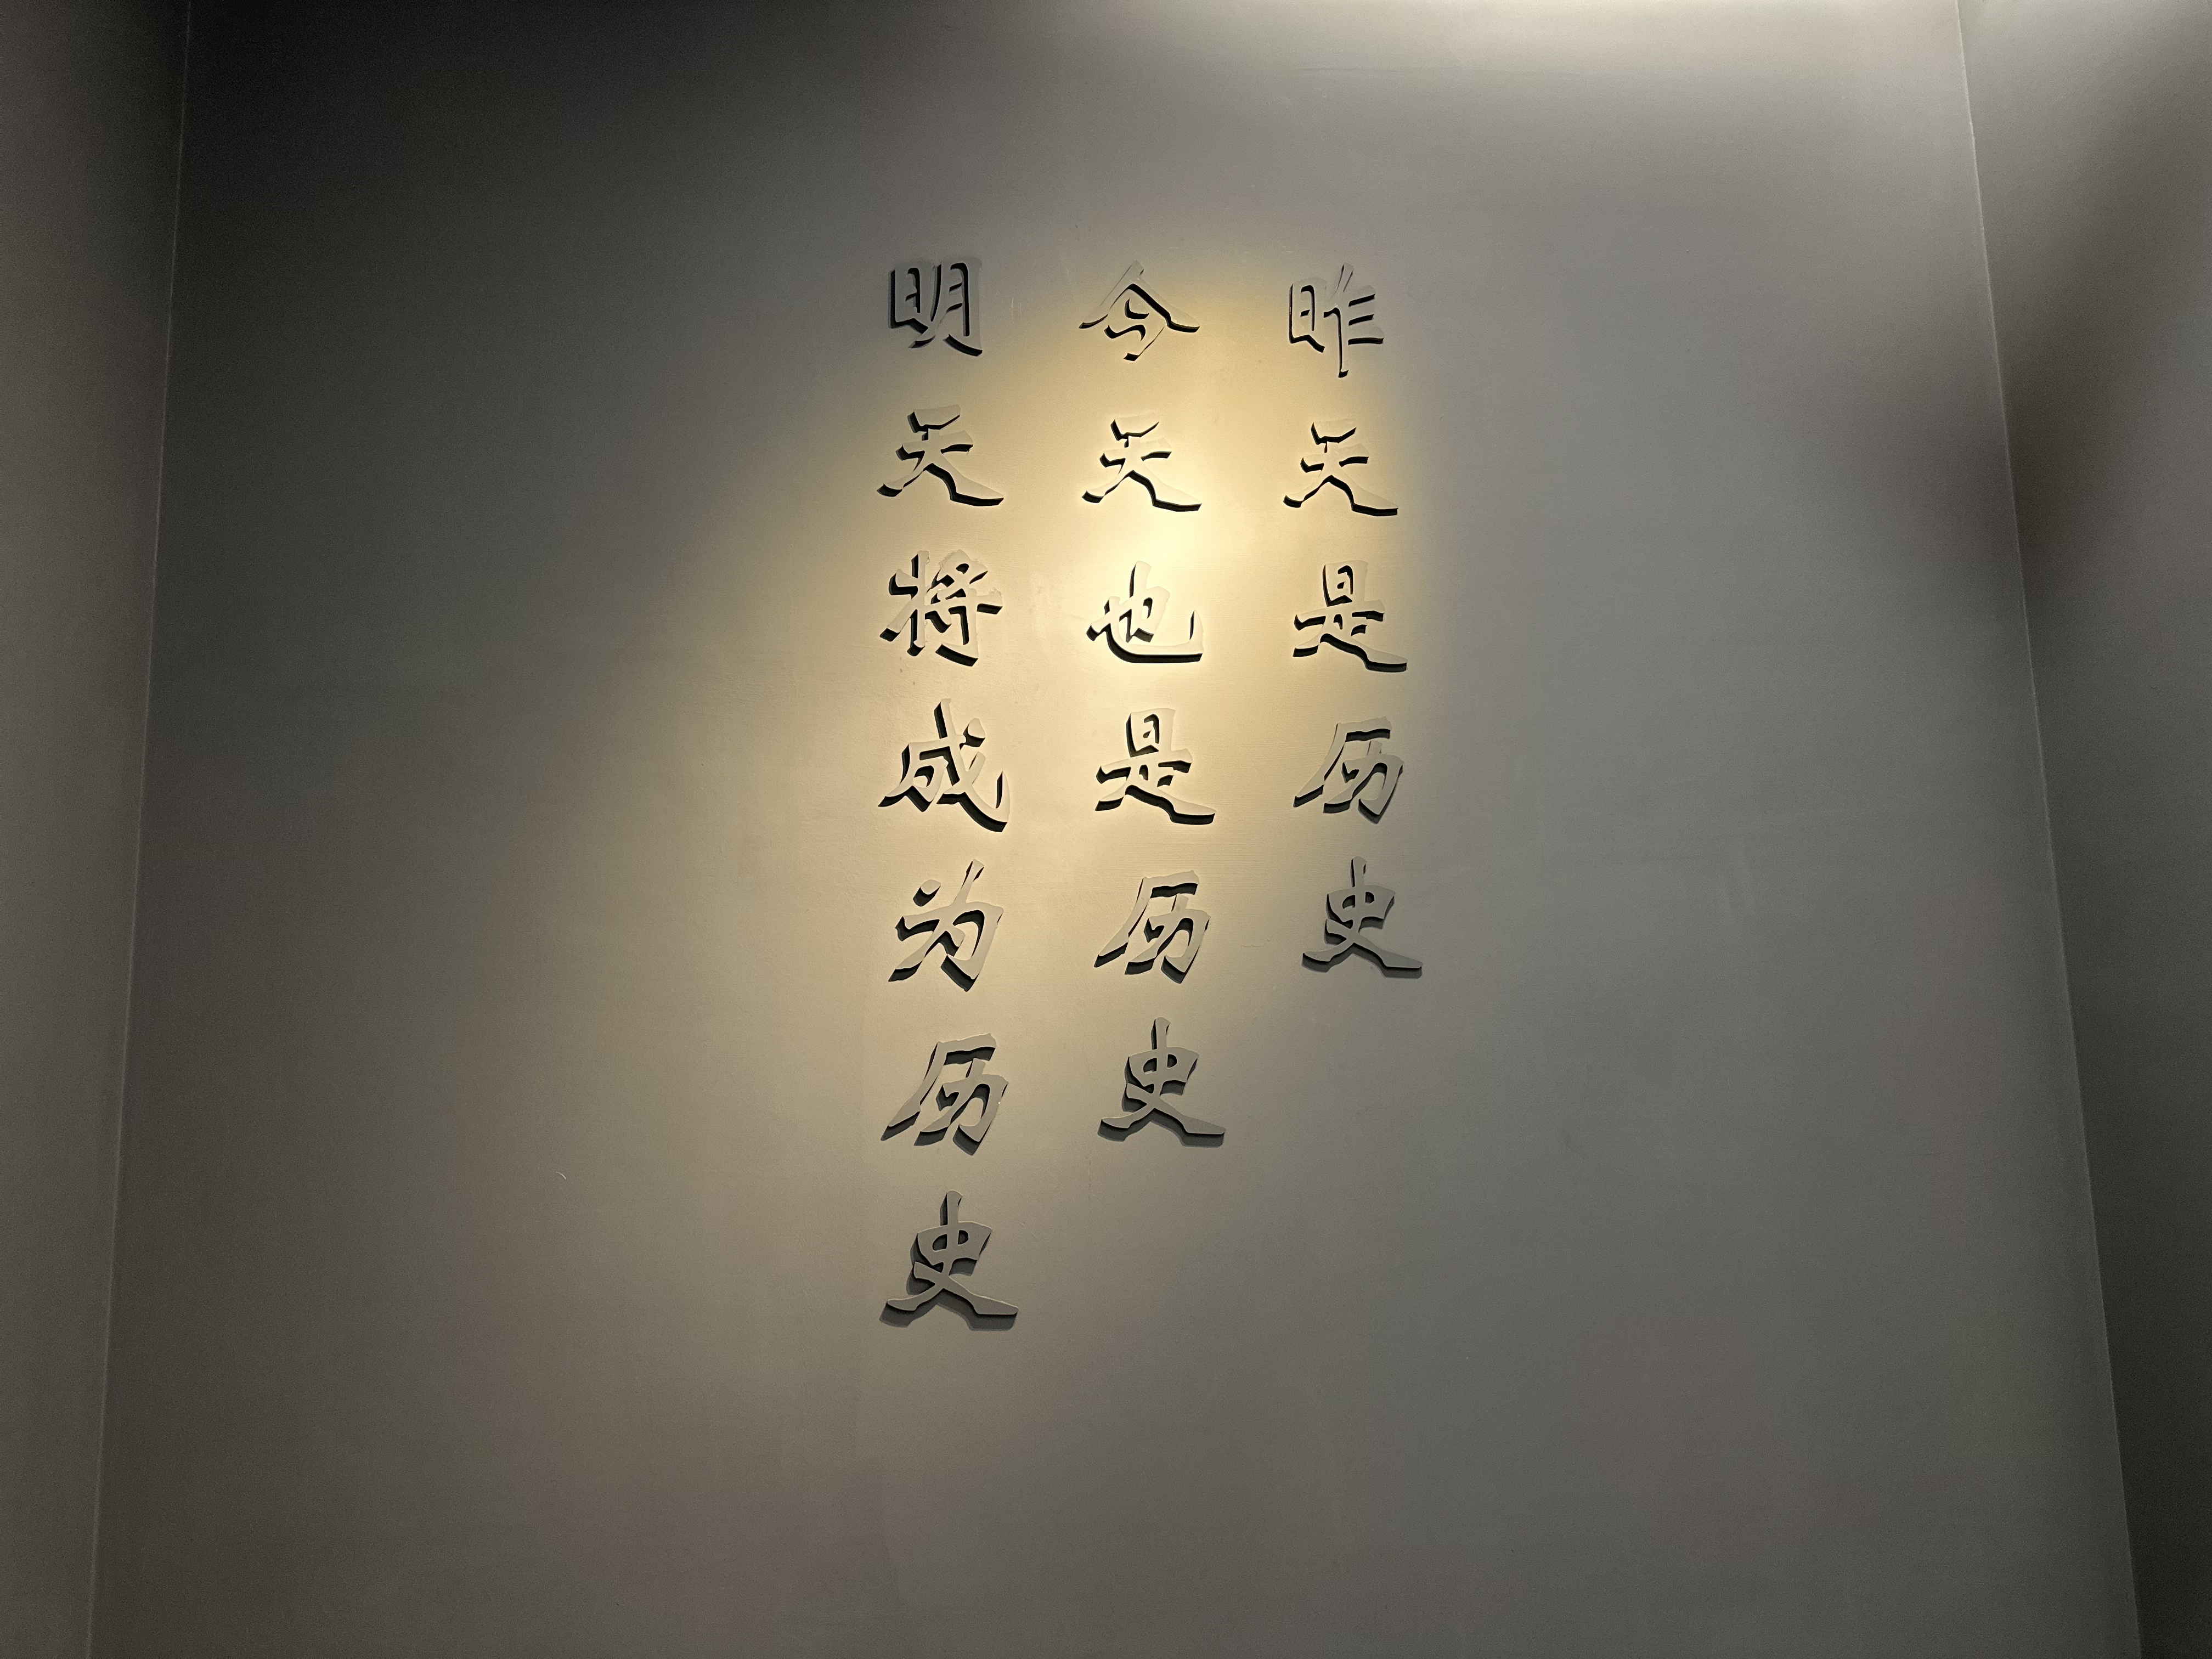 昨天是历史
今天也是历史
明天将成为历史